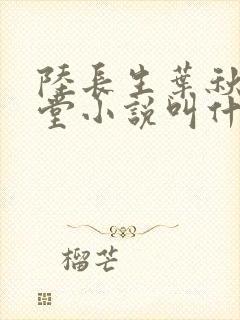 陸長生葉秋
堂小說叫什
榴芒